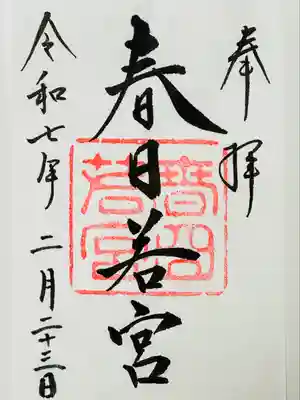 奉拝
春日若宮
春日
若宮
令和七年二月二十三日